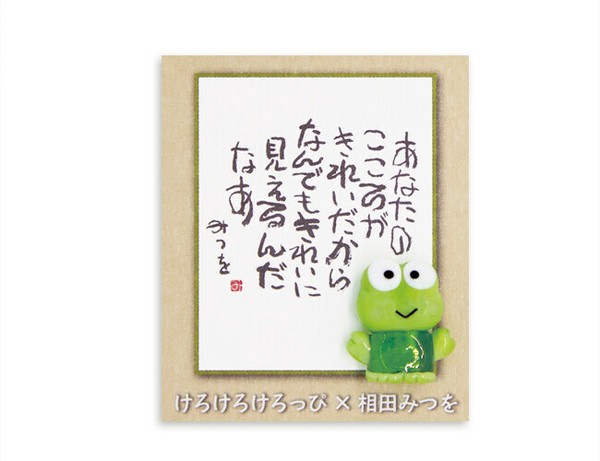 あなたの
こころが
きれいだから
なんでもきれいに
見えるんだ
なあ
みつを
み
けろけろけろっぴ × 相田みつを